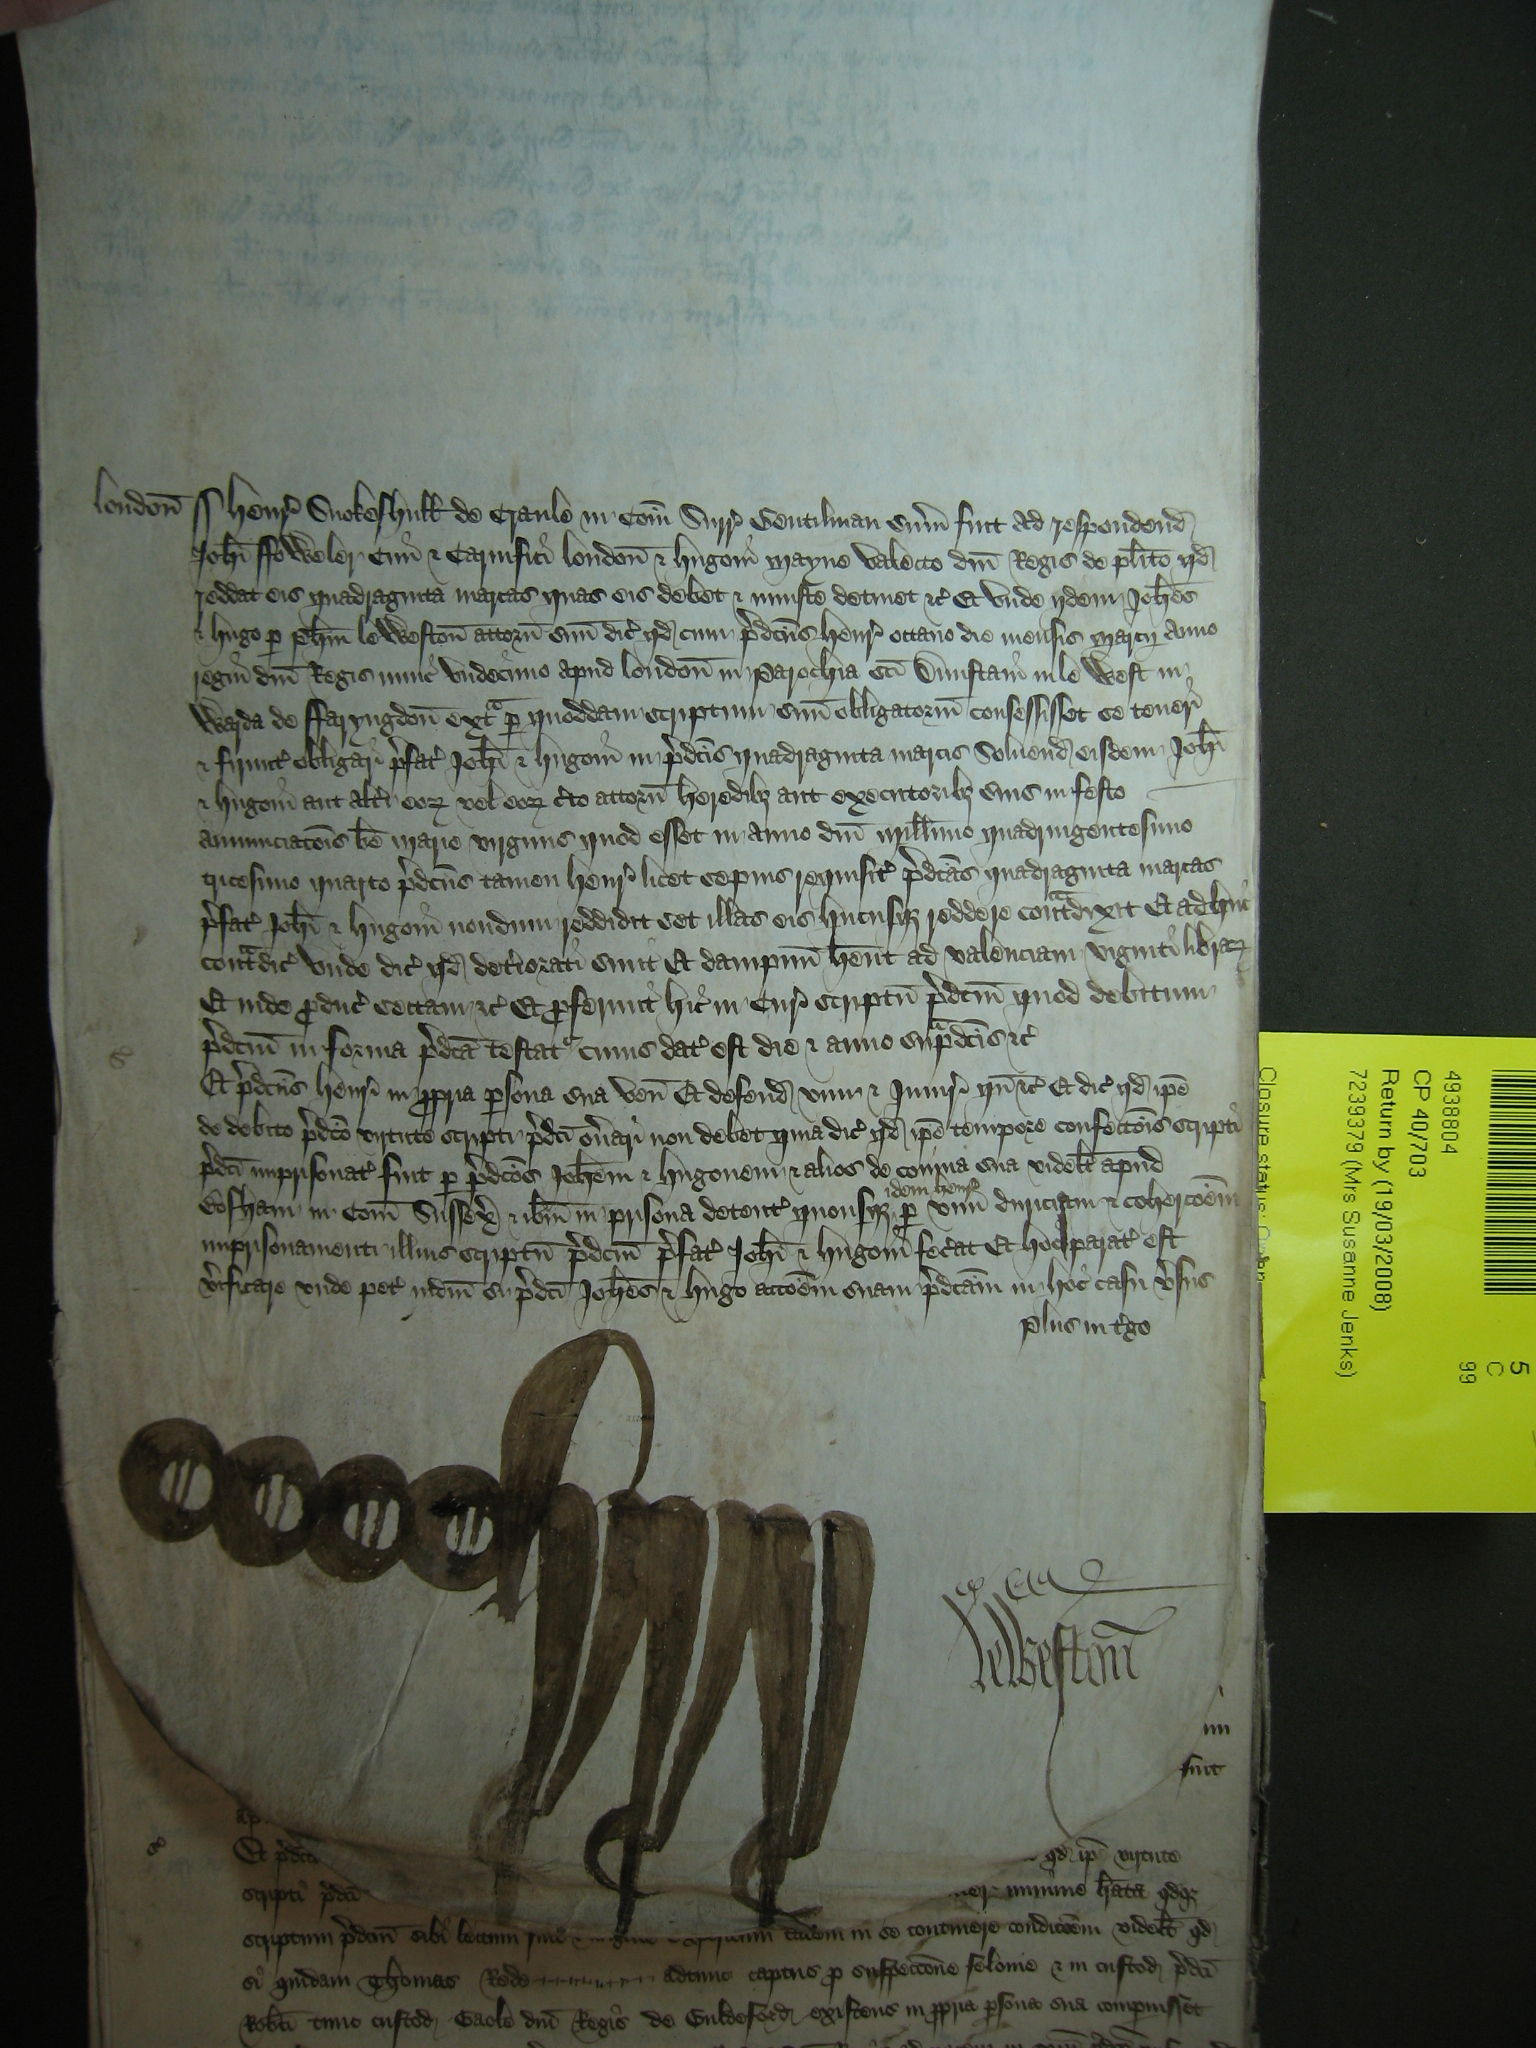 london̄ ss henr̉ Snokeshull de Cranle in Com̄ Surr̉ Gentilman sum̄ fuit ad respondend
Joh̄i ffoweler Ciui & Carnifici london̄ & hugoni mayne valecto dn̄i Regis de pl̄ito qd
reddat eis quadraginta marcas quas eis debet & iniuste detinet &c Et vnde ijdem Joh̄es
& hugo p Joh̄em leWeston̄ attorn̄ suū dic̄ qd cum p̄dc̄us henr̉ octauo die mensis marcij Anno
regni dn̄i Regis nunc vndecimo apud london̄ in Parochia sc̄i Dunstani in le West in
Warda de ffaryngdon̄ extª p quoddam scriptum suū obligatoriū concessisset se teneri
& firmit̉ obligari p̄fat̉ Joh̄i & hugoni in p̄dc̄is quadraginta marcis soluend eisdem Joh̄i
& hugoni aut alt̉i eoꝝ vel eoꝝ c̉to attorn̄ heredibꝫ aut executoribꝫ suis in festo
Annunciac̄ois bē marie virginis quod esset in anno dn̄i mill̄imo quadringentesimo
tricesimo quarto p̄dc̄us tamen henr̉ licet sepius requisit̉ p̄dc̄as quadraginta marcas
p̄fat̉ Joh̄i & hugoni nondum reddidit set illas eis hucusqꝫ reddere contªdixit Et adhuc
contªdic̉ vnde dic̉ qd det̉iorati sunt Et dampnū hēnt ad valenciam viginti libraꝝ
Et inde ꝓduc̉ sectam &c Et ꝓferunt hic in Cur̉ scriptū p̄dc̄m quod debitum
p̄dc̄m in forma p̄dc̄a testatʳ cuius dat̉ est die & anno supªdc̄is &c
Et p̄dc̄us henr̉ in ꝓpria ꝑsona sua ven̄ Et defend vim & Iniur̉ qn̄ &c Et dic̉ qd ipē
de debito p̄dc̄o virtute scripti p̄dc̄i on̉ari non debet quia dic̉ qd ipē tempore confecc̄ois scripti
p̄dc̄i imprisonat̉ fuit p p̄dc̄os Joh̄em & hugonem & alios de couina sua videl̄t apud
Bosham in Com̄ Sussex̄ & ib̄m in prisona detent̉ quousqꝫ idem henr̉ p vim duriciam & cohercōem
imprisonamenti illius scriptū p̄dc̄m p̄fat̉ Joh̄i & hugoni fec̉at Et hoc parat̉ est
v̉ificare vnde pet̉ iudm̄ si p̄dc̄i Joh̄es & hugo acc̄oem suam p̄dc̄am in hoc casu v̉sus
plus in t̉go
leWeston̄
fuit
Et p̄dc̄us
qd ipē virtute
scripti p̄dc̄i
minime
scriptum p̄dc̄m sibi lectum in se continere condic̄oem videl̄t qd
si quidam Thomas Rede adtunc captus p suspeccōne felonie & in custod p̄dc̄i
Rob̄ti tunc custod Gaole dn̄i Regis de Guldeford existens in ꝓpria ꝑsona sua comparuisset
4938804
CP 40/703
Return by (19/03/2008)
7239379 (Mrs Susanne Jenks)
Closure status: Open
5
C
99